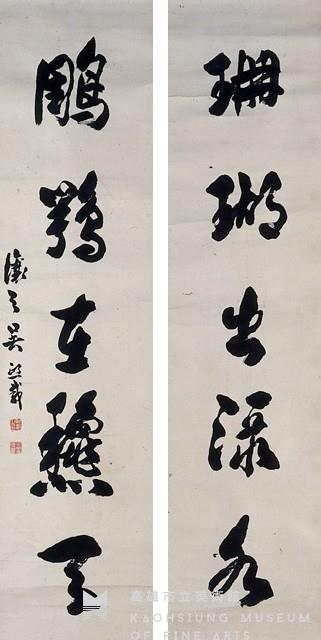 珊瑚出淥水
鵰鶚在龝天
讓之吳熙載
高雄市立美術館
KAOHSIUNG MUSEUM
OF FINE ARTS